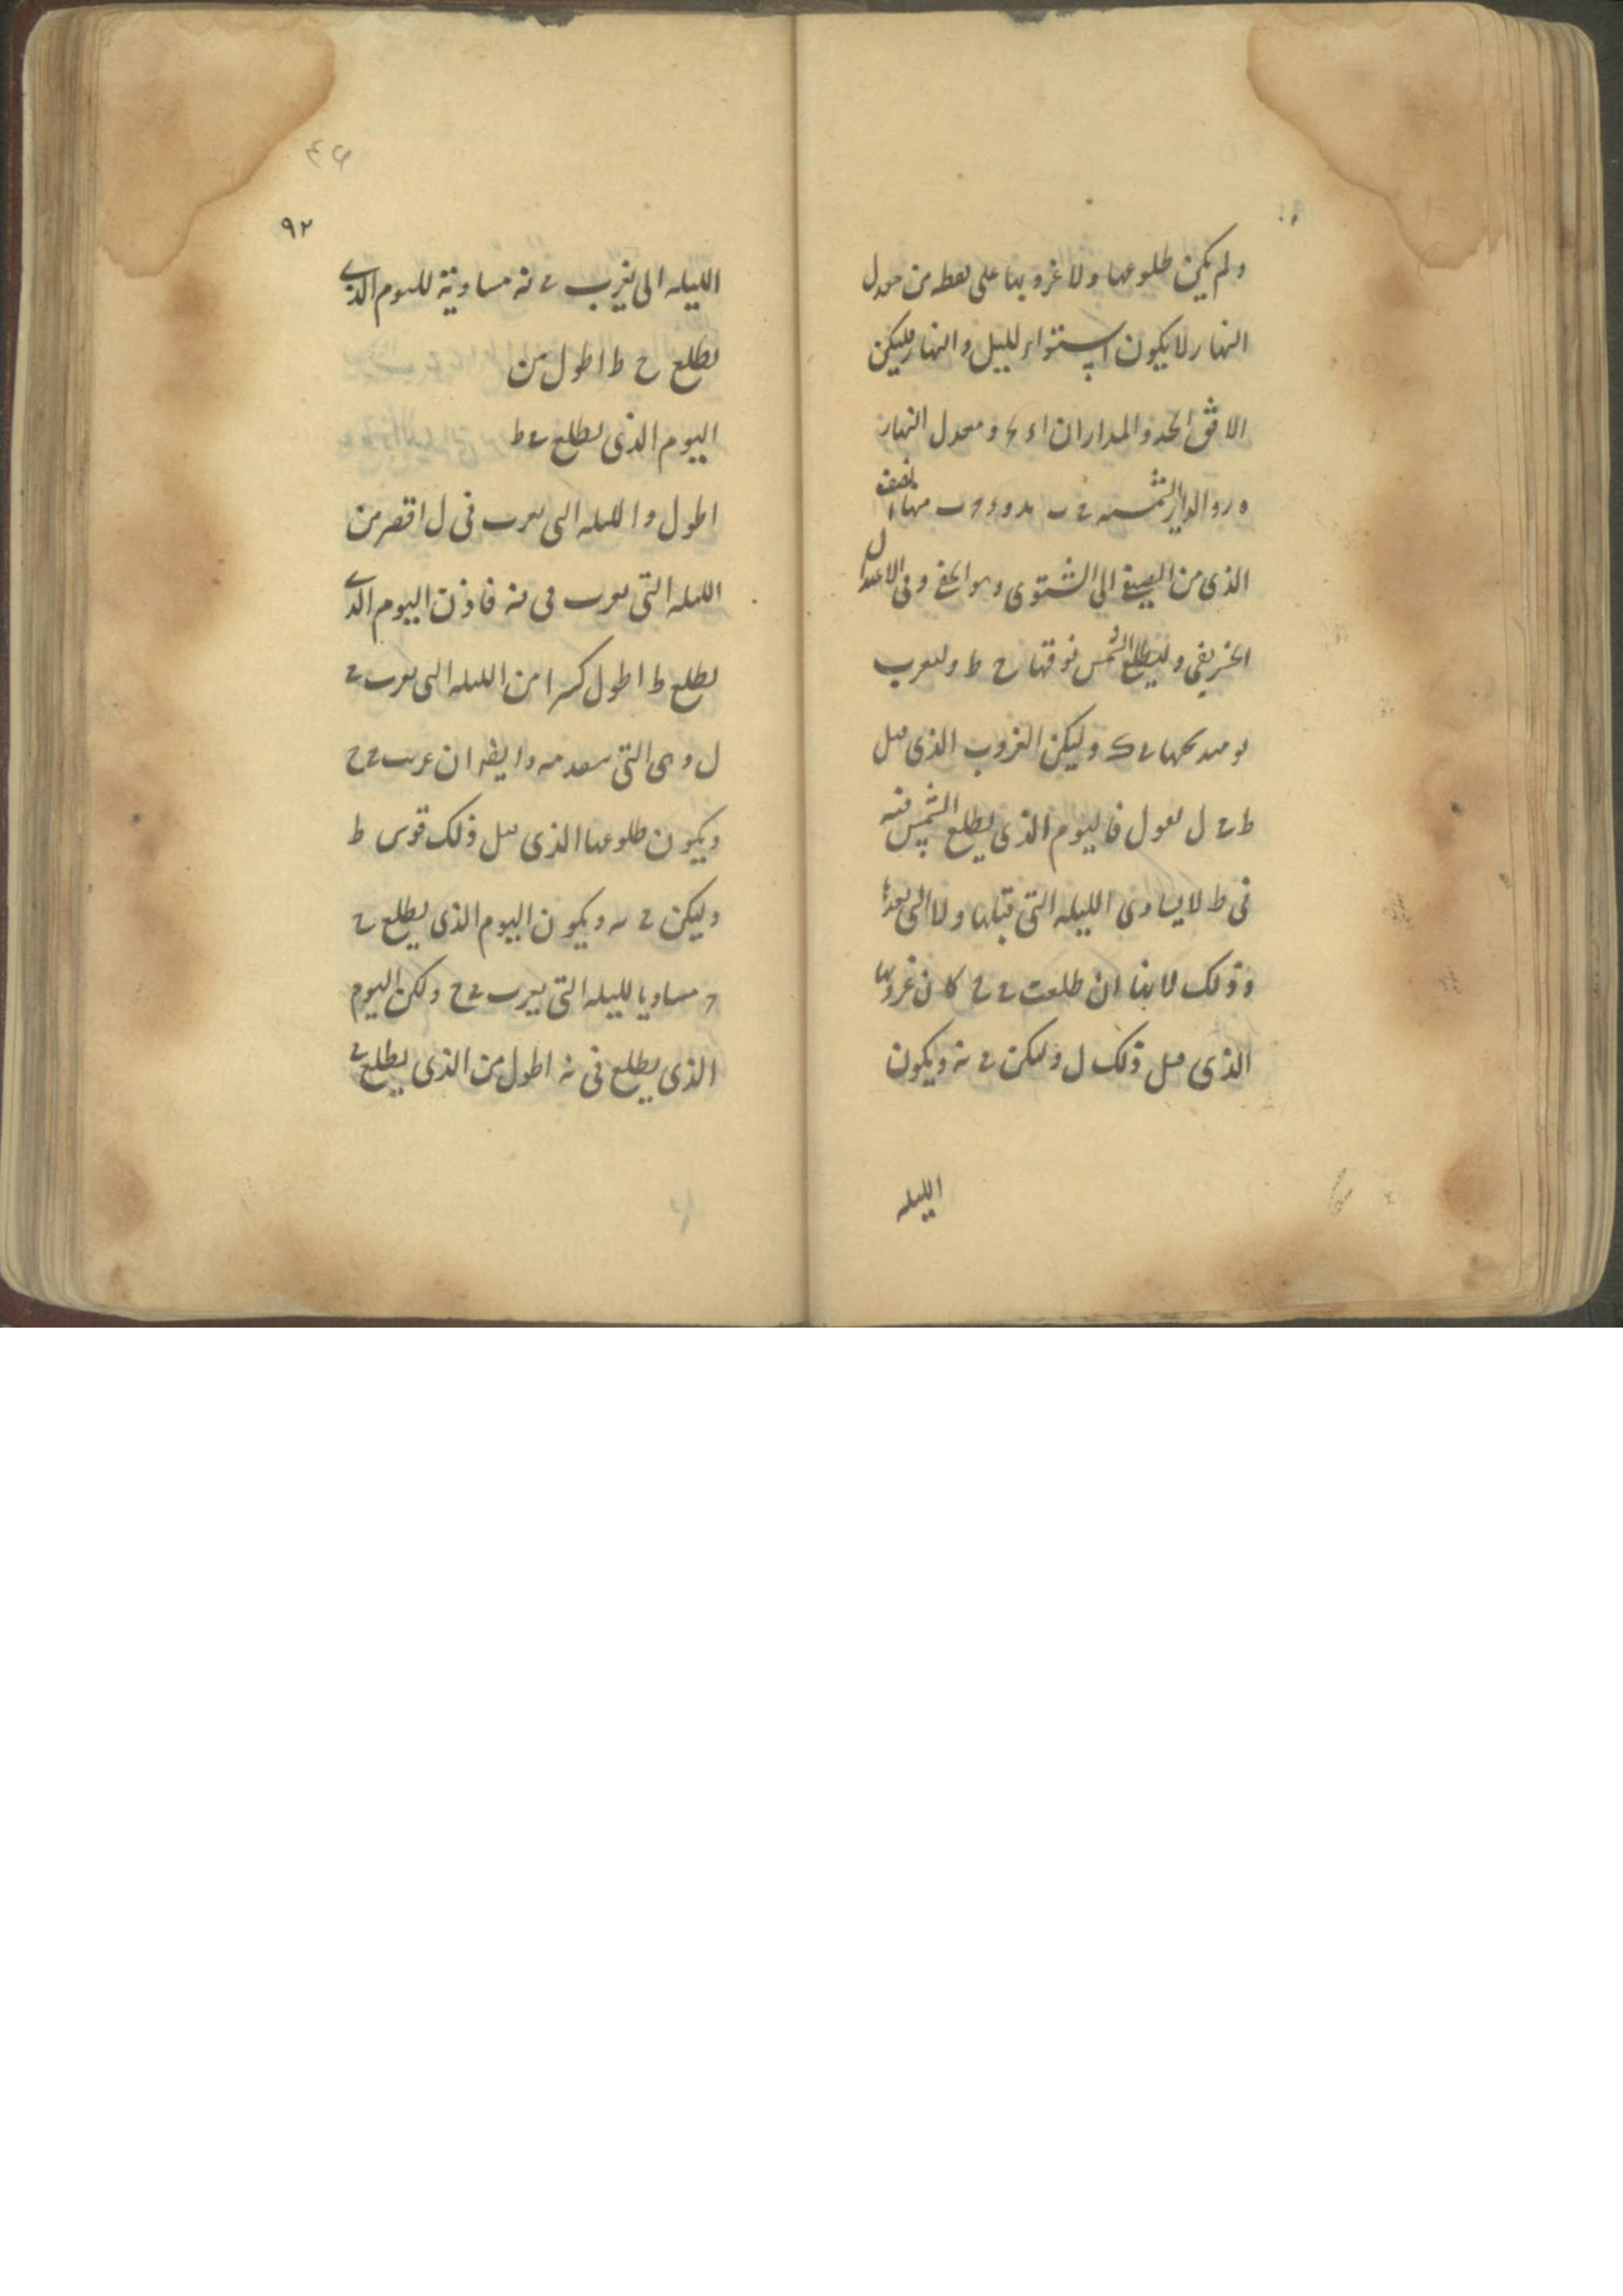 ولم يكن طلوعها ولا غروبها على نقطه من معدل
النهار لا يكون استواء لليل والنهار فليكن
الافق ا بحد والمداران اء ومعدل النهار
ه ر والدايرالشمسيه في
الذى من الصيفى الى الشتوى وهو وفى الاعتدال
الخريفى وليطلع الشمس فوقها ح ط وليغرب
وليكن الغروب الذى قبل
ط فى ل نقول فاليوم الذى يطلع الشمس فيه
فى ط لا يساوى الليله التى قبلها ولا التى بعدها
وذلك لانها ان طلعت فى ح كان غروبها
الذى قبل ذلك ل وليكن فى نه ويكون
الليله
٩٢
الليله التى يغرب فى نه مساوية لليوم الذى
يطلع ح ط اطول من
اليوم الذى يطلع فى ط
اطول والليله التى يغرب فى ل اقصر من
الليله التى يغرب فى نه فاذن اليوم الذى
يطلع ط اطول كثيرا من الليله التى يغرب فى
ل وهى التى وايضا ان غربت فى ح
ويكون طلوعها الذى قبل ذلك قوس ط
وليكن فى ويكون اليوم الذى يطلع فى
مساويا لليله التى يغرب فى ح ولكن اليوم
الذى يطلع فى نه اطول من الذى يطلع فى